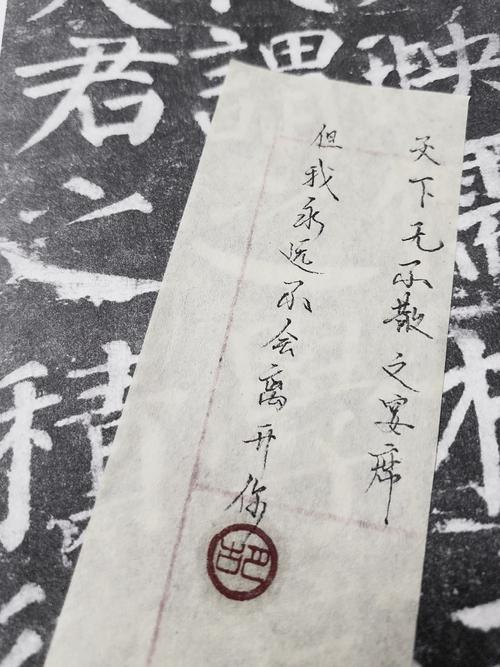 天下无不散之宴席
但我永远不会离开你
君之
積
謂
映